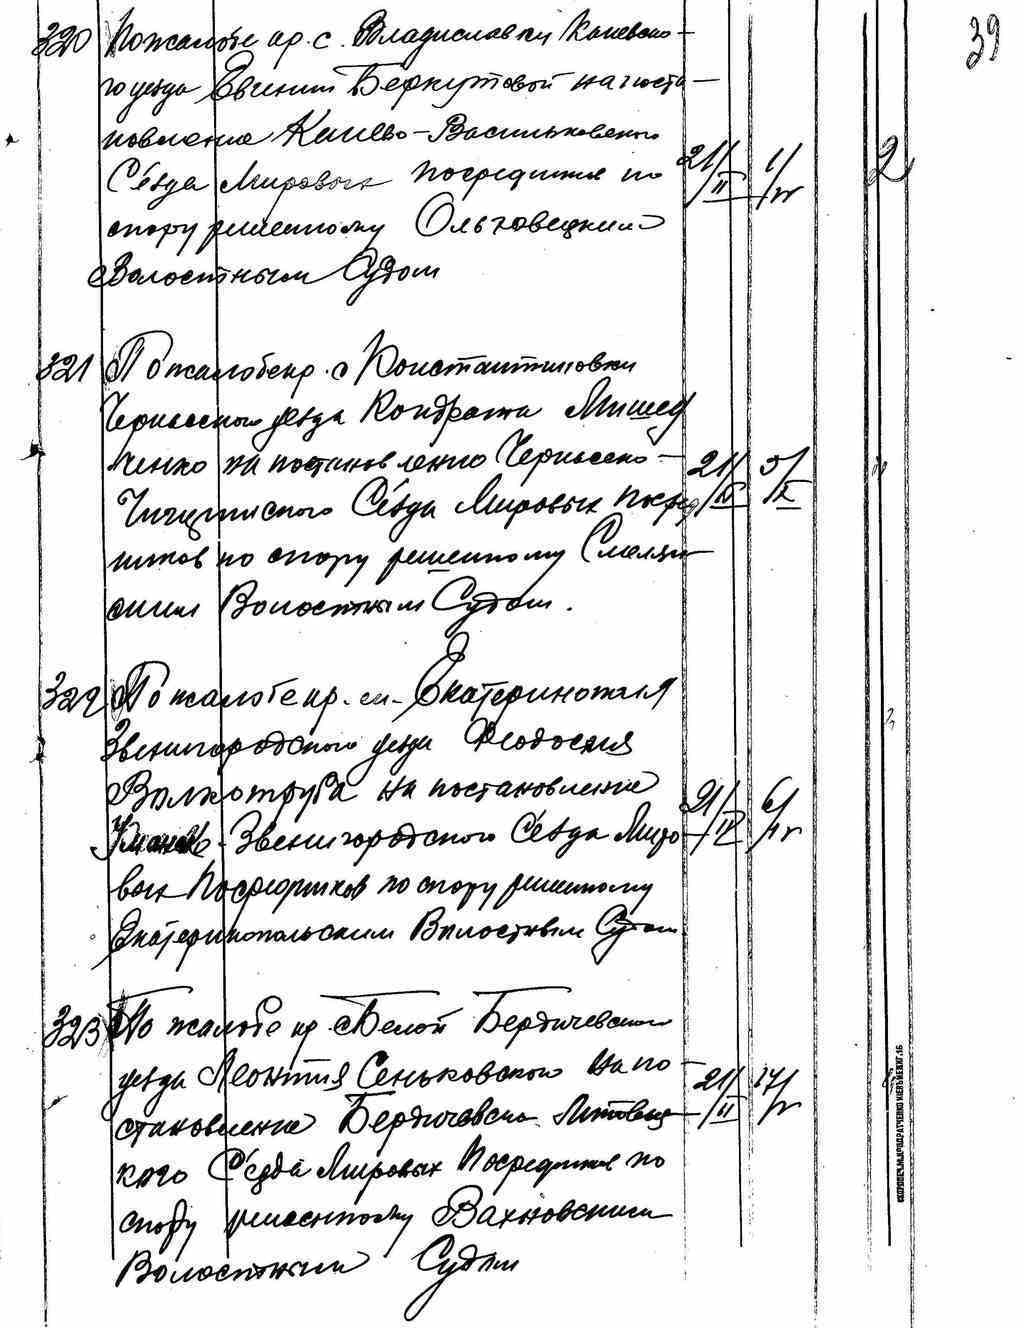 39
320 По жалобе кр. с. Владиславки Каневско-
го уезда Евгении Беркутовой на поста-
новление Киево-Васильковского
Съезда Мировых посредников по 21/II 1/IV 2
спору решенному Ольховецким
Волостным Судом
321 По жалобе кр. с Константиновки
Черкасского уезда Кондрата Мищен
ченко на постановление Черкасско-
Чигиринского Съезда Мировых Посред 21/II 5/X
ников по спору решенному Смелян
ским Волостным Судом.
322 По жалобе кр. м. Екатеринополя
Звенигородского уезда Феодосия
Волкотруба на постановление
Уманско-Звенигородского Съезда Миро 21/II 6/IV
вых Посредников по спору решенному
Екатеринопольским Волостным Судом
323 По жалобе кр с Белой Бердичевского
уезда Леонтия Сеньковского на по-
становление Бердичевско Липовец 21/II 17/V
кого Съезда Мировых Посредников по
спору решенному Вахновским
Волостным Судом